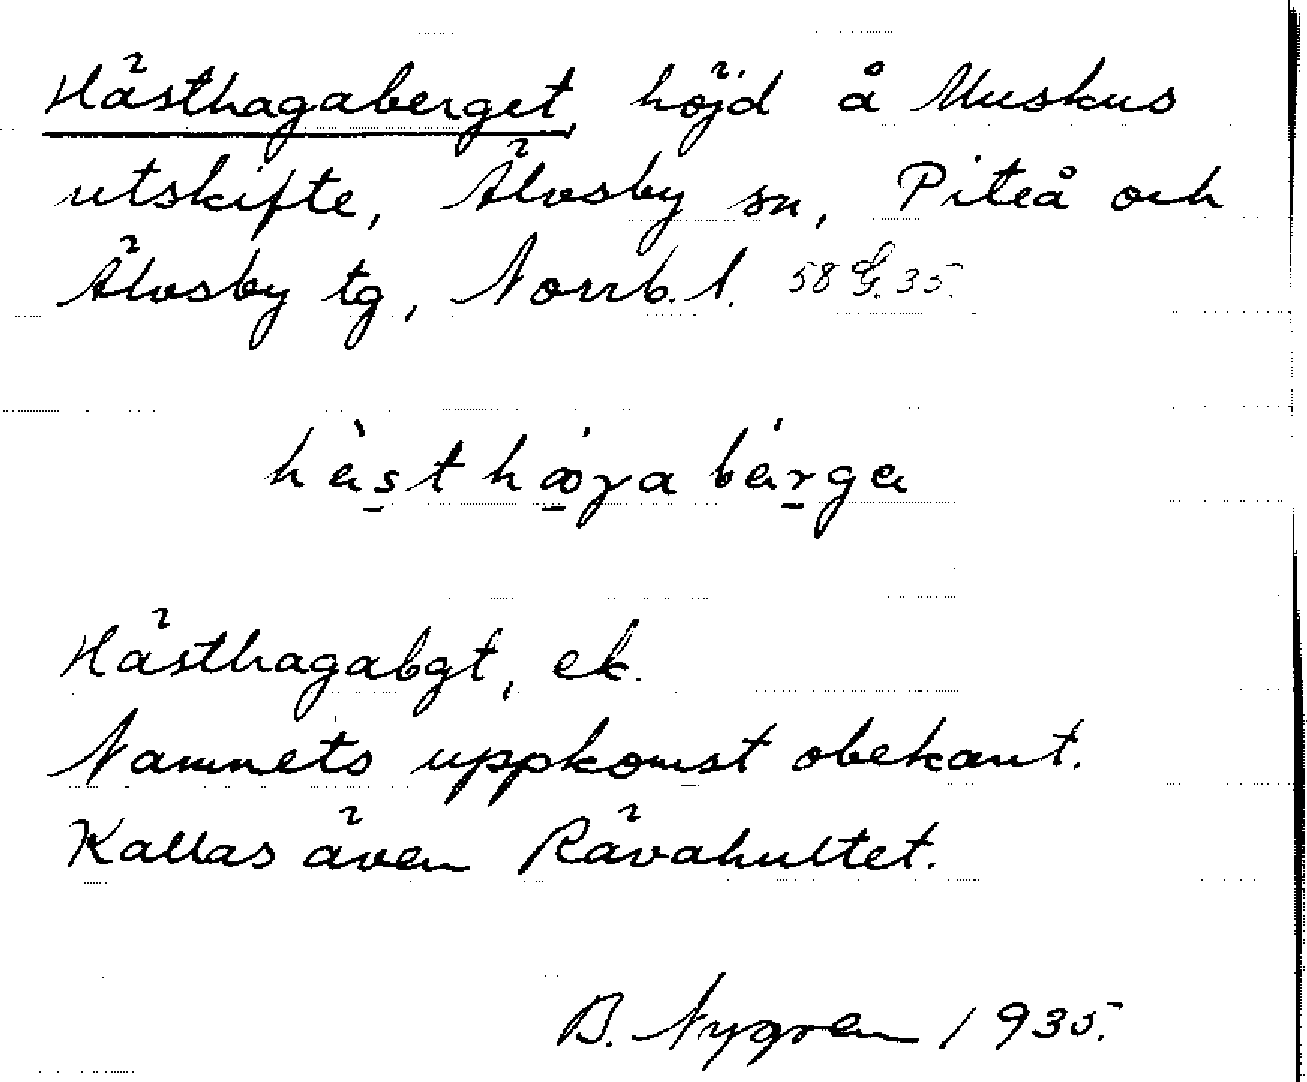 Hästhagaberget, höjd å Muskus
utskifte, Älvsby sn, Piteå och
Älvsby tg, Norrb. l. 58 G. 35.
Hästhagabgt, ek.
Namnets uppkomst obekant.
Kallas även Rävahultet.
B. Nygren 1935.